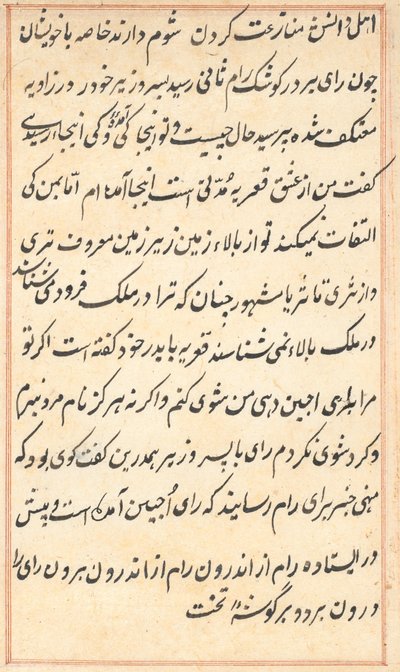 اهل دانش منازعت کردن شوم دارند خاصه با خویشان
چون رای بر در کوشک رام ثانی رسید پسر وزیر خود در زاویه
معتکف شده پرسید حال چیست و تو اینجا کی آمدهٔ و کی اینجا رسیدی
گفت من از عشق قعریه مدتی است اینجا آمده ام اما بمن کی
التفات نمیکند تو از بالاء زمین زیر زمین معروف تری
و از ثری تا ثریا مشهور چنان که ترا در ملک فرود می شناسند
در ملک بالاء نمی شناسند قعریه با پدر خود گفته است اگر تو
مرا برای اجین دهی من شوی کنم واگرنه هرگز نام مرد نبرم
و گرد شوی نگردم رای با پسر وزیر همدرین گفت گوی بود که
منهی خبر برای رام رسانیند که رای اُجین آمده است و پیش
در ایستاده رام از اندرون رام از اندرون برون رای را
درون برد و بر گوشهٔ تخت